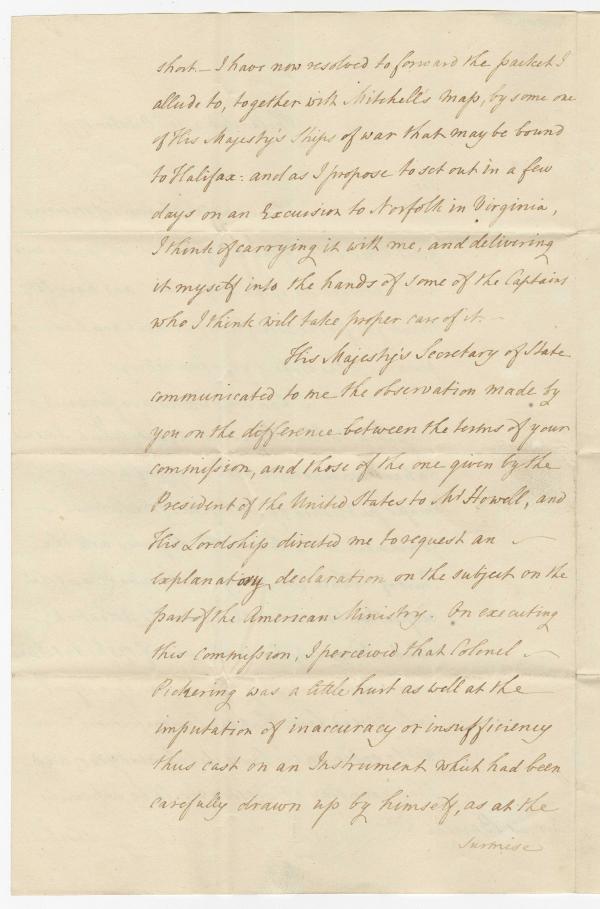 short – I have now resolved to forward the packet I
allude to, together with Mitchell's map, by some one
of His Majesty's Ships of war that may be bound
to Halifax: and as I propose to set out in a few
days on an Excursion to Norfolk in Virginia,
I think of carrying it with me, and delivering
it myself into the hands of some of the Captains
who I think will take proper care of it. –
His Majesty's Secretary of State
communicated to me the observation made by
you on the difference between the terms of your
commission, and those of the one given by the
President of the United States to Mr Howell, and
His Lordship directed me to request an
explanatory declaration on the subject on the
part of the American Ministry. On executing
this commission, I perceived that Colonel
Pickering was a little hurt as well at the
imputation of inaccuracy or insufficiency
thus cast on an Instrument which had been
carefully drawn up by himself, as at the
surmise